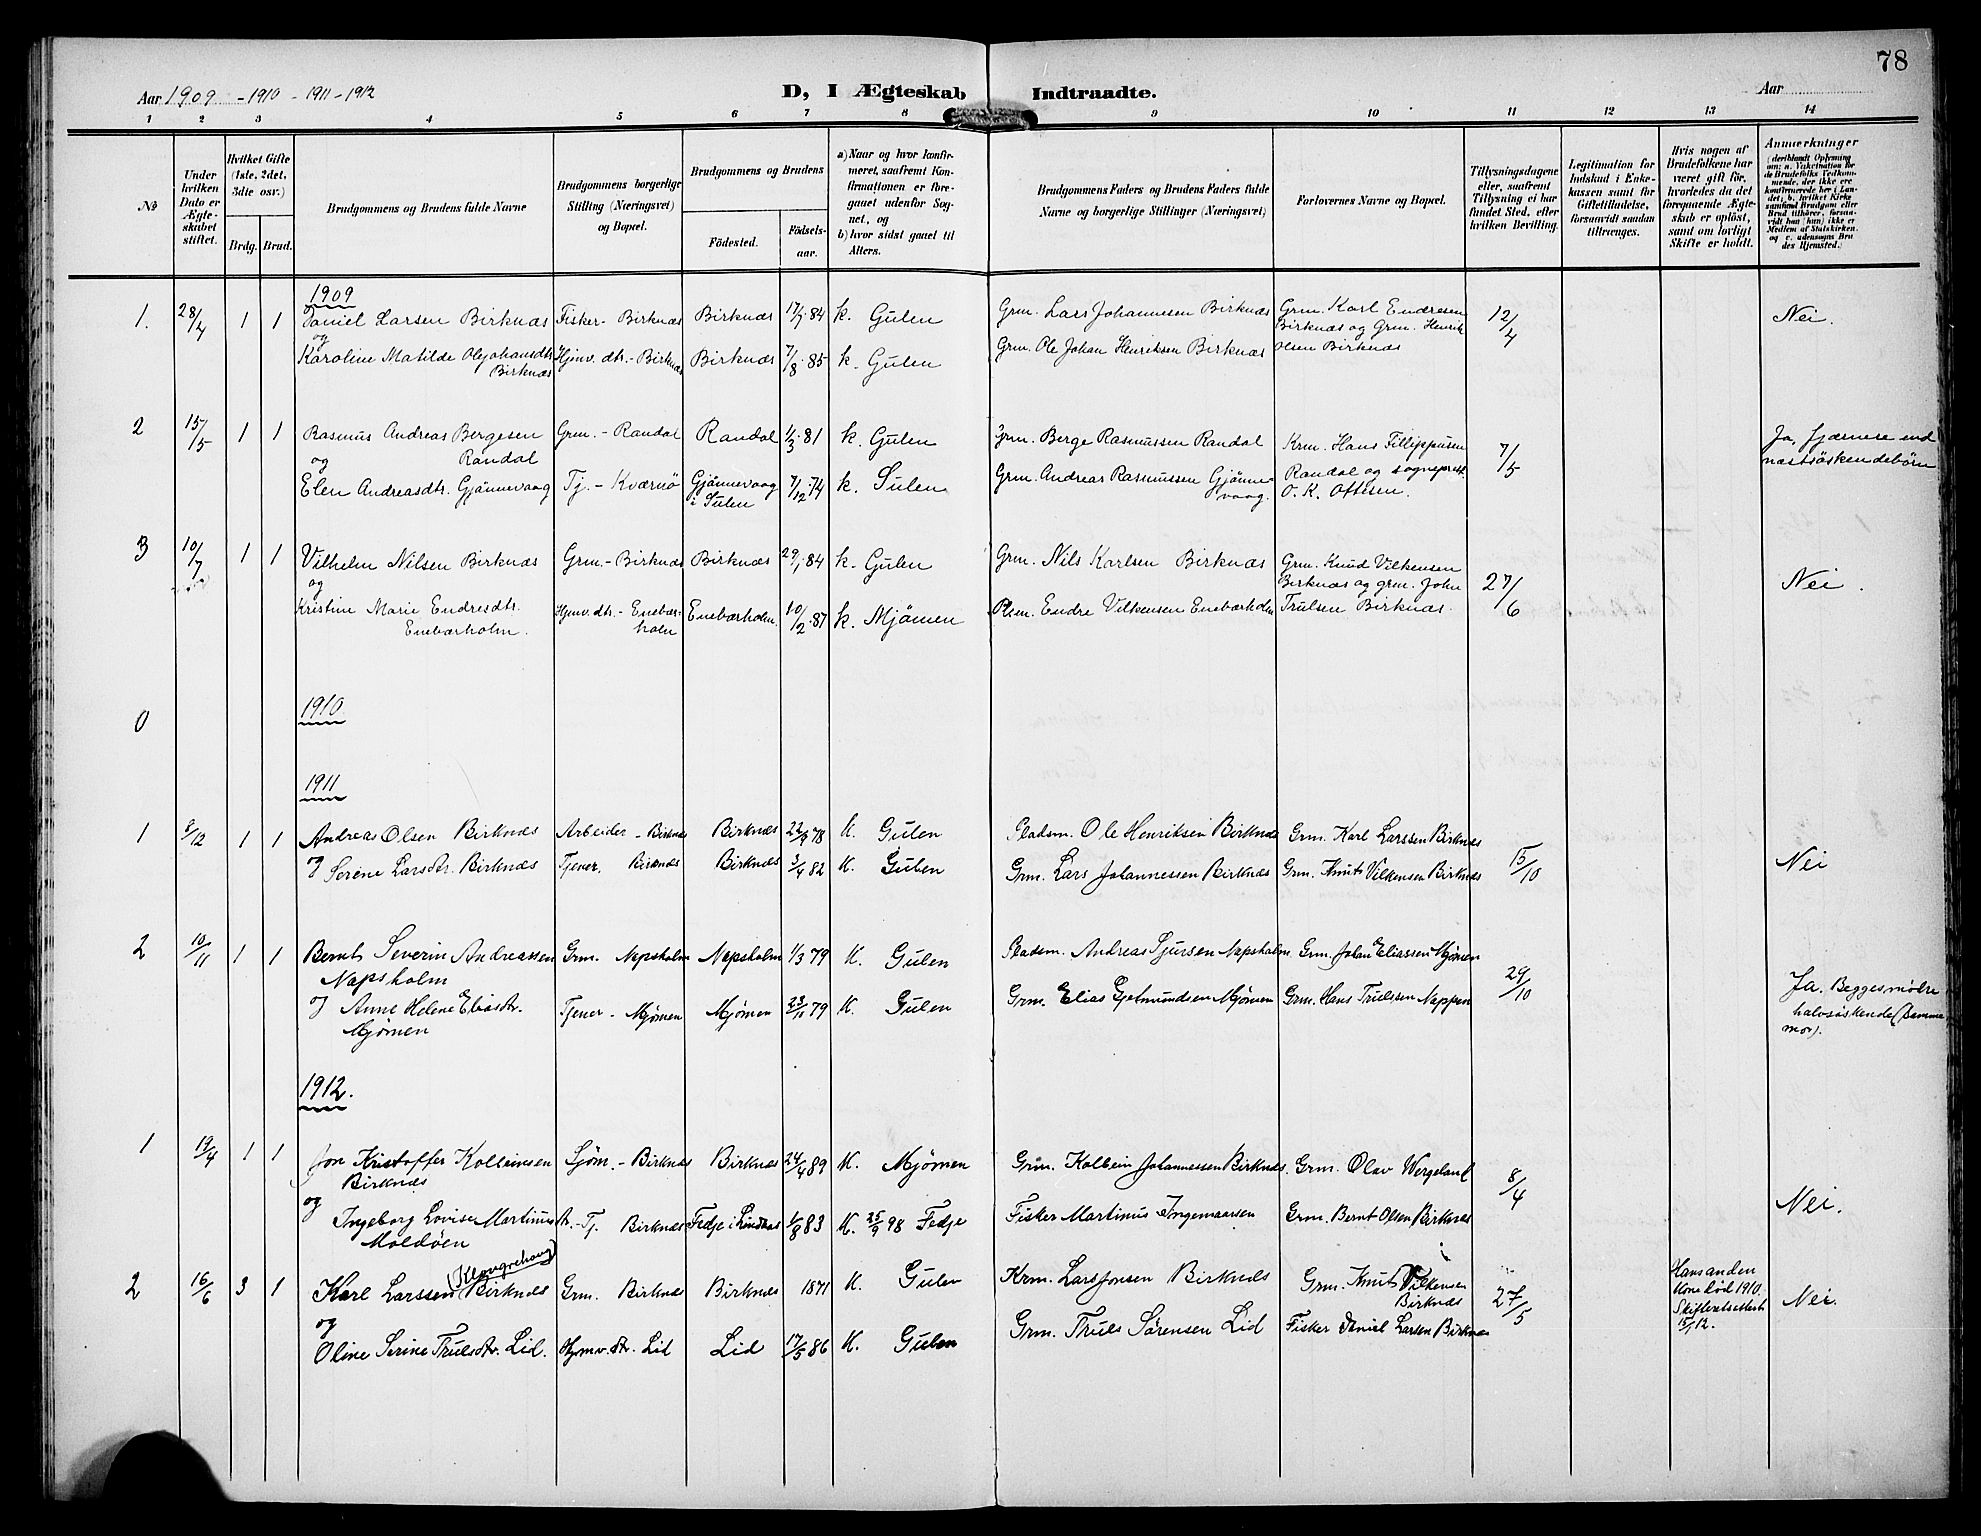 78
Aar 1909 - 1910 - 1911 - 1912
D, I Ægteskab Indtraadte.
Aar
1 2 3 4 5 6 7 8 9 10 11 12 13 14
No
Under hvilken Dato er Ægteskabet stiftet.
Hvilket Gifte (1ste, 2det, 3die osv.)
Brdg. Brud.
Brudgommens og Brudens fulde Navne
Brudgommens borgerlige Stilling (Næringsvei) og Bopæl.
Brudgommens og Brudens
Födested. Födselsaar.
a) Naar og hvor konfirmeret, saafremt Konfirmationen er foregaaet udenfor Sognet, og
b) hvor sidst gaaet til Alters.
Brudgommens Faders og Brudens Faders fulde Navne og borgerlige Stillinger (Næringsvei)
Forlovernes Navne og Bopæl.
Tillysningsdagene eller, saafremt Tillysning ei har fundet Sted, efter hvilken Bevilling.
Legitimation for Indskud i Enkekassen samt for Giftetilladelse, forsaavidt saadan tiltrænges.
Hvis nogen af Brudefolkene har været gift för, hvorledes da det foregaaende Ægteskab er oplöst, samt om lovligt Skifte er holdt.
Anmærkninger
(deriblandt Oplysning om: a. Vakcination for de Brudefolks Vedkommende, der ikke ere konfirmerede her i Landet; b. hvilket Kirkesamfund Brudgom eller Brud tilhörer, forsaavidt han (hun) ikke er Medlem af Statskirken, og c. udensogns Brudes Hjemsted.)
1909
1. 28/4 1 1 Daniel Larsen Birknæs Fisker - Birknæs Birknæs 17/7.84 k. Gulen Grm. Lars Johannesen Birknæs Grm. Karl Endresen 12/4 Nei.
og Birknæs og Grm. Henrik
Karoline Matilde Olejohansdtr. Hjmv. dtr. - Birknæs Birknæs 7/8.85 k. Gulen Grm. Ole Johan Henriksen Birknæs Olsen Birknæs
Birknæs
2 15/5 1 1 Rasmus Andreas Bergesen Grm. - Randal Randal 1/3.81 k. Gulen Grm. Berge Rasmussen Randal Krm. Hans Fillippusen 7/5 Ja, fjærnere end
og Randal Randal og sogneprest næstsöskendebörn
Elen Andreasdtr. Gjönnevaag Tj. - Kværnö Gjönnevaag 7/12.74 k. Sulen Grm. Andreas Rasmussen Gjönnevaag. O. K. Ottesen.
i Sulen
3 10/7 1 1 Vilhelm Nilsen Birknæs Grm. - Birknæs Birknæs 29/1.84 k. Gulen Grm. Nils Karlsen Birknæs Grm. Knud Vilkensen 27/6 Nei.
og Birknæs og grm. John
Kristine Marie Endresdtr. Hjmv. dtr. - Enebærholm Enebærholm. 10/2.87 k. Mjömen Plsm. Endre Vilkensen Enebærholm Trulsen Birknæs.
Enebærholm.
0 1910
1911
1 /12 1 1 Andreas Olsen Birknæs Arbeider - Birknæs Birknæs 22/9 78 K. Gulen Pladsm. Ole Henriksen Birknæs Grm. Karl Larssen Birknæs 15/10 Nei
og Serine Larsdtr. Birknæs Tjener, Birknæs Birknæs 3/4 82 K. Gulen Grm. Lars Johannessen Birknæs Grm. Knut Vilkensen Birknæs
2 10/11 1 1 Bernt Severin Andreassen Grm. Napsholm Napsholm 1/3 79 K. Gulen Pladsm. Andreas Sjursen Napsholm Grm. Johan Eliassen Mjömen 29/10 Ja. Begges mødre
Napsholm halvsøskende (samme
og Anne Helene Eliasdtr. Tjener - Mjømen Mjømen 23/11 79 K. Gulen Grm. Elias Gjetmundsen Mjømen Grm. Hans Trulssen Nappen mor).
Mjømen
1912.
1 19/4 1 1 Jon Kristoffer Kolbeinsen Sjøm. - Birknæs Birknæs 24/4 89 K. Mjømen Grm. Kolbein Johannessen Birknæs. Grm. Olav Wergeland 8/4 Nei.
Birknæs
og Ingeborg Lovise Martinusdtr. - Tj. Birknæs Fedje i Lindaas 1/8 83 K. 25/9 98 Fedje Fisker Martinus Ingemaarsen Grm. Bernt Olsen Birknæs
Moldøen
2 16/6 3 1 Karl Larssen (Klaugrehaug) Birknæs Grm. Birknæs Birknæs 1871 K. Gulen Krm. Lars Jonsen Birknæs Grm. Knut Vilkensen 27/5 Hans anden Nei.
Birknæs kone død 1910.
og Skifteretsattest
Oline Serine Trulsdtr. Lid. Hjmv. dtr. Lid Lid 17/5 86 K. Gulen Grm. Truls Sørensen Lid Fisker Daniel Larsen Birknæs 15/1 12.